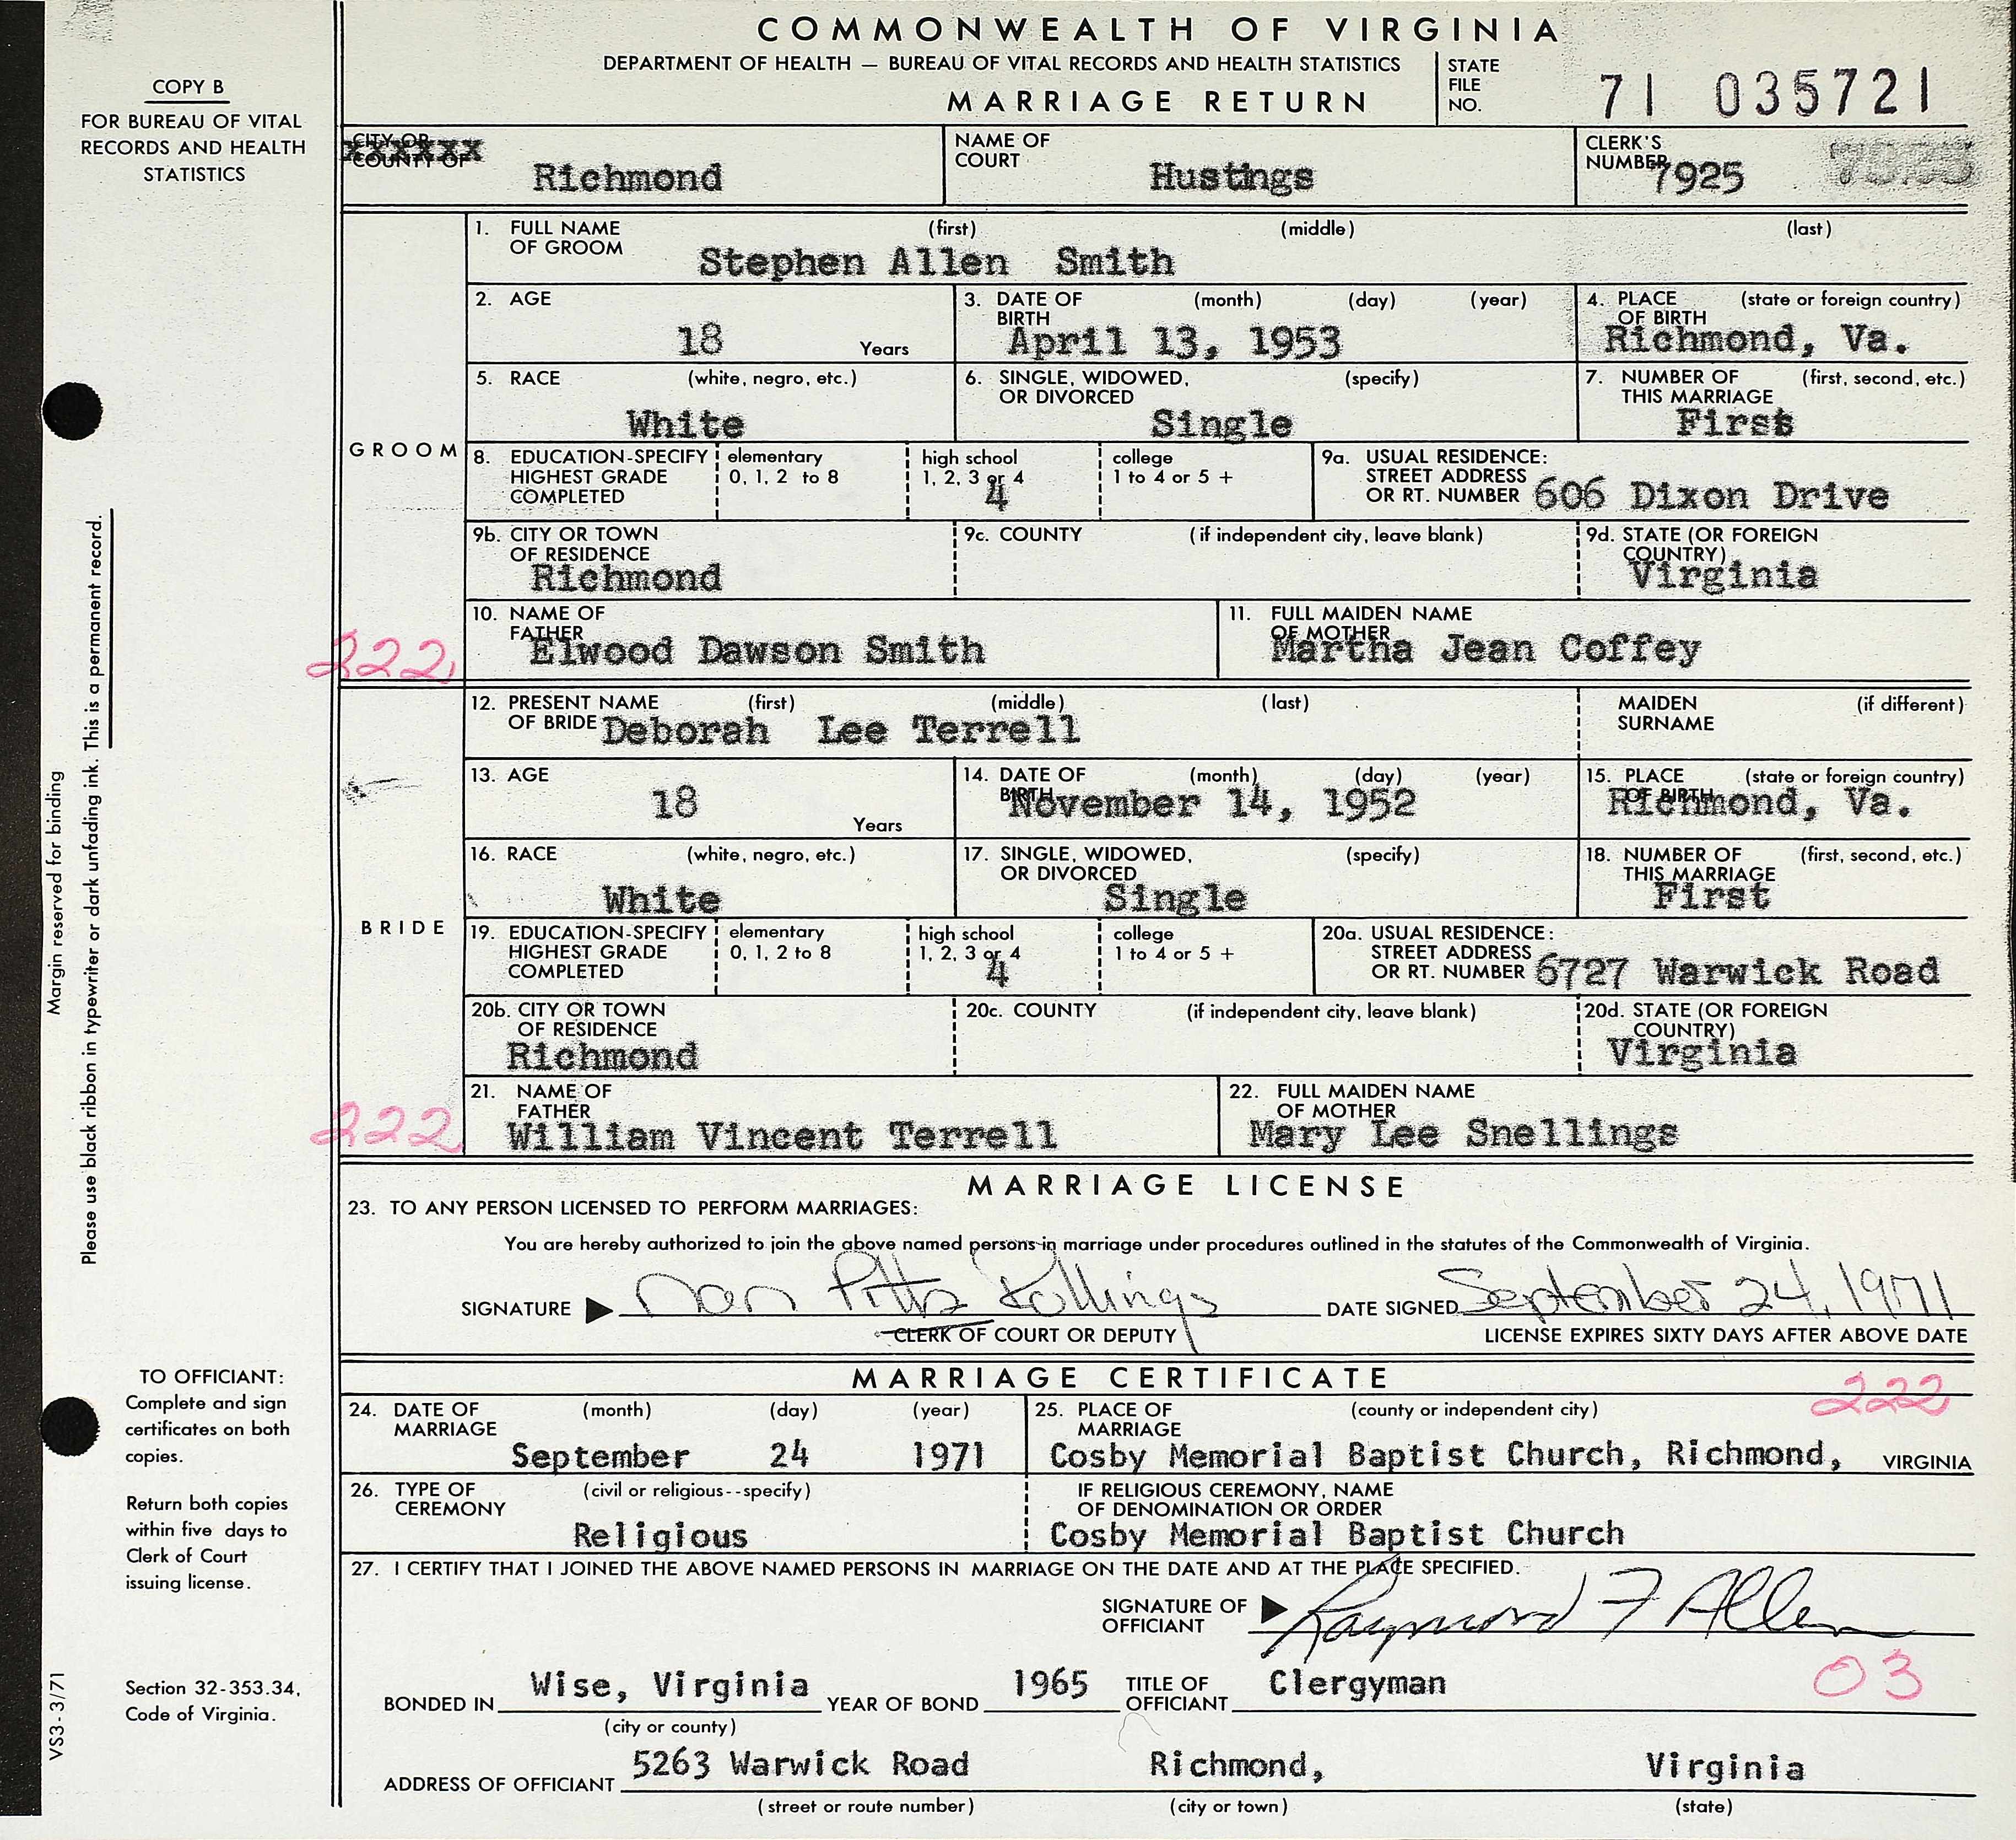 COMMONWEALTH OF VIRGINIA
DEPARTMENT OF HEALTH — BUREAU OF VITAL RECORDS AND HEALTH STATISTICS
MARRIAGE RETURN
STATE FILE NO. 71 035721
COPY B
FOR BUREAU OF VITAL
RECORDS AND HEALTH
STATISTICS
CITY OR
COUNTY OF
xxxxxx
Richmond
NAME OF
COURT
Hustings
CLERK'S
NUMBER
7925
GROOM
1. FULL NAME (first) (middle) (last)
OF GROOM
Stephen Allen Smith
2. AGE
18 Years
3. DATE OF (month) (day) (year)
BIRTH
April 13, 1953
4. PLACE (state or foreign country)
OF BIRTH
Richmond, Va.
5. RACE (white, negro, etc.)
White
6. SINGLE, WIDOWED, (specify)
OR DIVORCED
Single
7. NUMBER OF (first, second, etc.)
THIS MARRIAGE
First
8. EDUCATION-SPECIFY
HIGHEST GRADE
COMPLETED
elementary
0, 1, 2 to 8
high school
1, 2, 3 or 4
4
college
1 to 4 or 5 +
9a. USUAL RESIDENCE:
STREET ADDRESS
OR RT. NUMBER 606 Dixon Drive
9b. CITY OR TOWN
OF RESIDENCE
Richmond
9c. COUNTY (if independent city, leave blank)
9d. STATE (OR FOREIGN
COUNTRY)
Virginia
10. NAME OF
FATHER
Elwood Dawson Smith
11. FULL MAIDEN NAME
OF MOTHER
Martha Jean Coffey
222
BRIDE
12. PRESENT NAME (first) (middle) (last)
OF BRIDE Deborah Lee Terrell
MAIDEN (if different)
SURNAME
13. AGE
18
Years
14. DATE OF (month) (day) (year)
BIRTH
November 14, 1952
15. PLACE (state or foreign country)
OF BIRTH
Richmond, Va.
16. RACE (white, negro, etc.)
White
17. SINGLE, WIDOWED, (specify)
OR DIVORCED
Single
18. NUMBER OF (first, second, etc.)
THIS MARRIAGE
First
19. EDUCATION-SPECIFY
HIGHEST GRADE
COMPLETED
elementary
0, 1, 2 to 8
high school
1, 2, 3 or 4
4
college
1 to 4 or 5 +
20a. USUAL RESIDENCE:
STREET ADDRESS
OR RT. NUMBER 6727 Warwick Road
20b. CITY OR TOWN
OF RESIDENCE
Richmond
20c. COUNTY (if independent city, leave blank)
20d. STATE (OR FOREIGN
COUNTRY)
Virginia
21. NAME OF
FATHER
William Vincent Terrell
22. FULL MAIDEN NAME
OF MOTHER
Mary Lee Snellings
222
MARRIAGE LICENSE
23. TO ANY PERSON LICENSED TO PERFORM MARRIAGES:
You are hereby authorized to join the above named persons in marriage under procedures outlined in the statutes of the Commonwealth of Virginia.
SIGNATURE Nan Pitts Rollings DATE SIGNED September 24, 1971
CLERK OF COURT OR DEPUTY LICENSE EXPIRES SIXTY DAYS AFTER ABOVE DATE
MARRIAGE CERTIFICATE
222
24. DATE OF (month) (day) (year)
MARRIAGE
September 24 1971
25. PLACE OF (county or independent city)
MARRIAGE
Cosby Memorial Baptist Church, Richmond, VIRGINIA
26. TYPE OF (civil or religious--specify)
CEREMONY
Religious
IF RELIGIOUS CEREMONY, NAME
OF DENOMINATION OR ORDER
Cosby Memorial Baptist Church
27. I CERTIFY THAT I JOINED THE ABOVE NAMED PERSONS IN MARRIAGE ON THE DATE AND AT THE PLACE SPECIFIED.
SIGNATURE OF
OFFICIANT
Raymond F Allen
03
BONDED IN Wise, Virginia YEAR OF BOND 1965 TITLE OF OFFICIANT Clergyman
(city or county)
ADDRESS OF OFFICIANT 5263 Warwick Road Richmond, Virginia
(street or route number) (city or town) (state)
Margin reserved for binding
Please use black ribbon in typewriter or dark unfading ink. This is a permanent record.
TO OFFICIANT:
Complete and sign
certificates on both
copies.
Return both copies
within five days to
Clerk of Court
issuing license.
Section 32-353.34,
Code of Virginia.
VS3-3/71